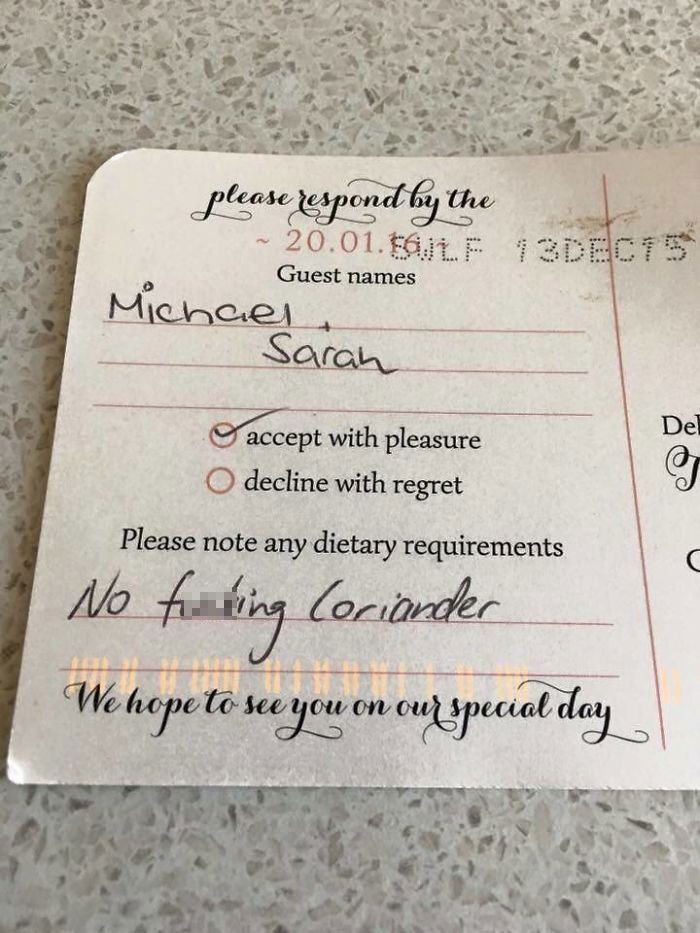 please respond by the
~ 20.01.16 ~
BWLF 13DEC15
Guest names
Michael +
Sarah
accept with pleasure
decline with regret
Please note any dietary requirements
No coriander
We hope to see you on our special day
Del